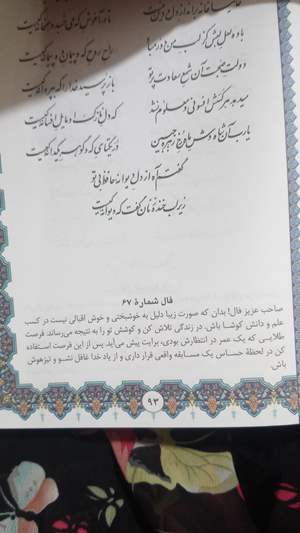 حالیا خانه برانداز دل و دین
تا در آغوش که می خسبد کیست
باده لعل لبش کز لب من دور مباد
راح روح که و پیمان ده پیمانه کیست
دولت صحبت آن شمع سعادت پرتو
باز پرسید خدا را که به پروانه کیست
می دهد هر کسش افسونی و معلوم نشد
که دل نازک او مایل افسانه کیست
یارب آن شاه وش ماه رخ زهره جبین
در یکتای که و گوهر یکدانه کیست
گفتم آه از دل دیوانه حافظ بی تو
زیر لب خنده زنان گفت که دیوانه کیست
فال شمارهٔ ۶۷
صاحب عزیز فال! بدان که صورت زیبا دلیل به خوشبختی و خوش اقبالی نیست در کسب
علم و دانش کوشا باش. در زندگی تلاش کن و کوشش تو را به نتیجه می‌رساند. فرصت
طلایی که یک عمر در انتظارش بودی، برایت پیش می‌آید پس از این فرصت استفاده
کن در لحظهٔ حساس یک مسابقه واقعی قرار داری و از یاد خدا غافل نشو و تیزهوش
باش.
۹۳